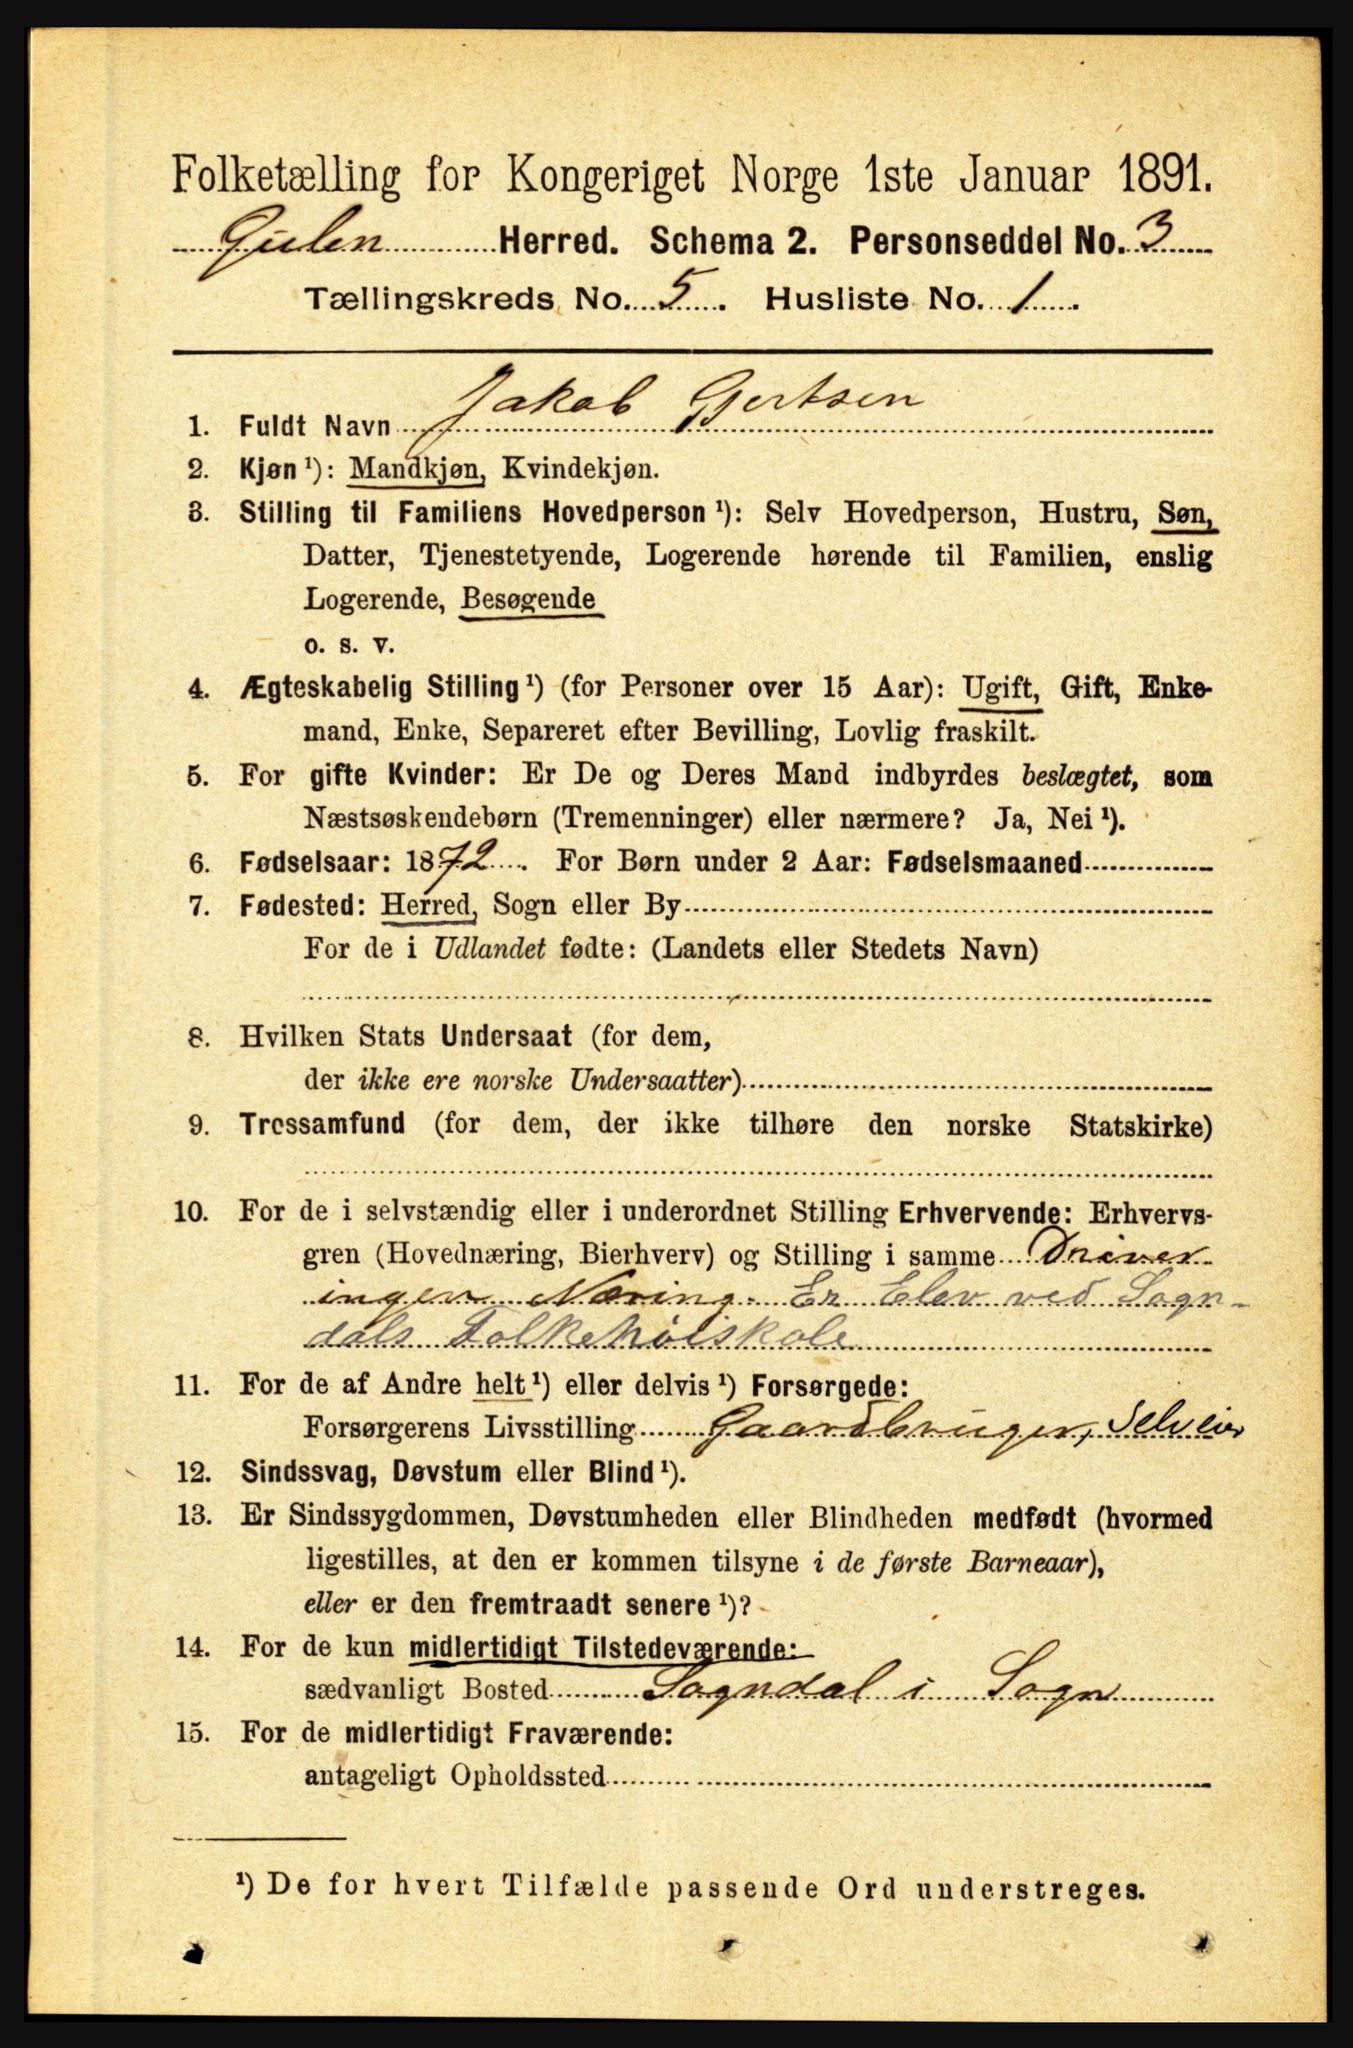 Folketælling for Kongeriget Norge 1ste Januar 1891.
Gulen Herred. Schema 2. Personseddel No. 3
Tællingskreds No. 5. Husliste No. 1.
1. Fuldt Navn Jakob Gjertsen
2. Kjøn ¹): Mandkjøn, Kvindekjøn.
3. Stilling til Familiens Hovedperson ¹): Selv Hovedperson, Hustru, Søn,
Datter, Tjenestetyende, Logerende hørende til Familien, enslig
Logerende, Besøgende
o. s. v.
4. Ægteskabelig Stilling ¹) (for Personer over 15 Aar): Ugift, Gift, Enke-
mand, Enke, Separeret efter Bevilling, Lovlig fraskilt.
5. For gifte Kvinder: Er De og Deres Mand indbyrdes beslægtet, som
Næstsøskendebørn (Tremenninger) eller nærmere? Ja, Nei ¹).
6. Fødselsaar: 1872. For Børn under 2 Aar: Fødselsmaaned
7. Fødested: Herred, Sogn eller By
For de i Udlandet fødte: (Landets eller Stedets Navn)
8. Hvilken Stats Undersaat (for dem,
der ikke ere norske Undersaatter)
9. Trossamfund (for dem, der ikke tilhøre den norske Statskirke)
10. For de i selvstændig eller i underordnet Stilling Erhvervende: Erhvervs-
gren (Hovednæring, Bierhverv) og Stilling i samme Driver
ingen Næring. Er Elev ved Sogn-
dals Folkehøiskole
11. For de af Andre helt ¹) eller delvis ¹) Forsørgede:
Forsørgerens Livsstilling Gaardbruger, Selveier
12. Sindssvag, Døvstum eller Blind ¹).
13. Er Sindssygdommen, Døvstumheden eller Blindheden medfødt (hvormed
ligestilles, at den er kommen tilsyne i de første Barneaar),
eller er den fremtraadt senere ¹)?
14. For de kun midlertidigt Tilstedeværende:
sædvanligt Bosted Sogndal i Sogn
15. For de midlertidigt Fraværende:
antageligt Opholdssted
¹) De for hvert Tilfælde passende Ord understreges.